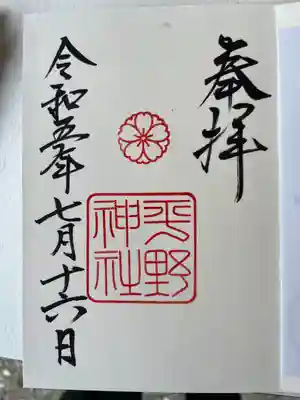 奉拝
平野神社
令和五年七月十六日